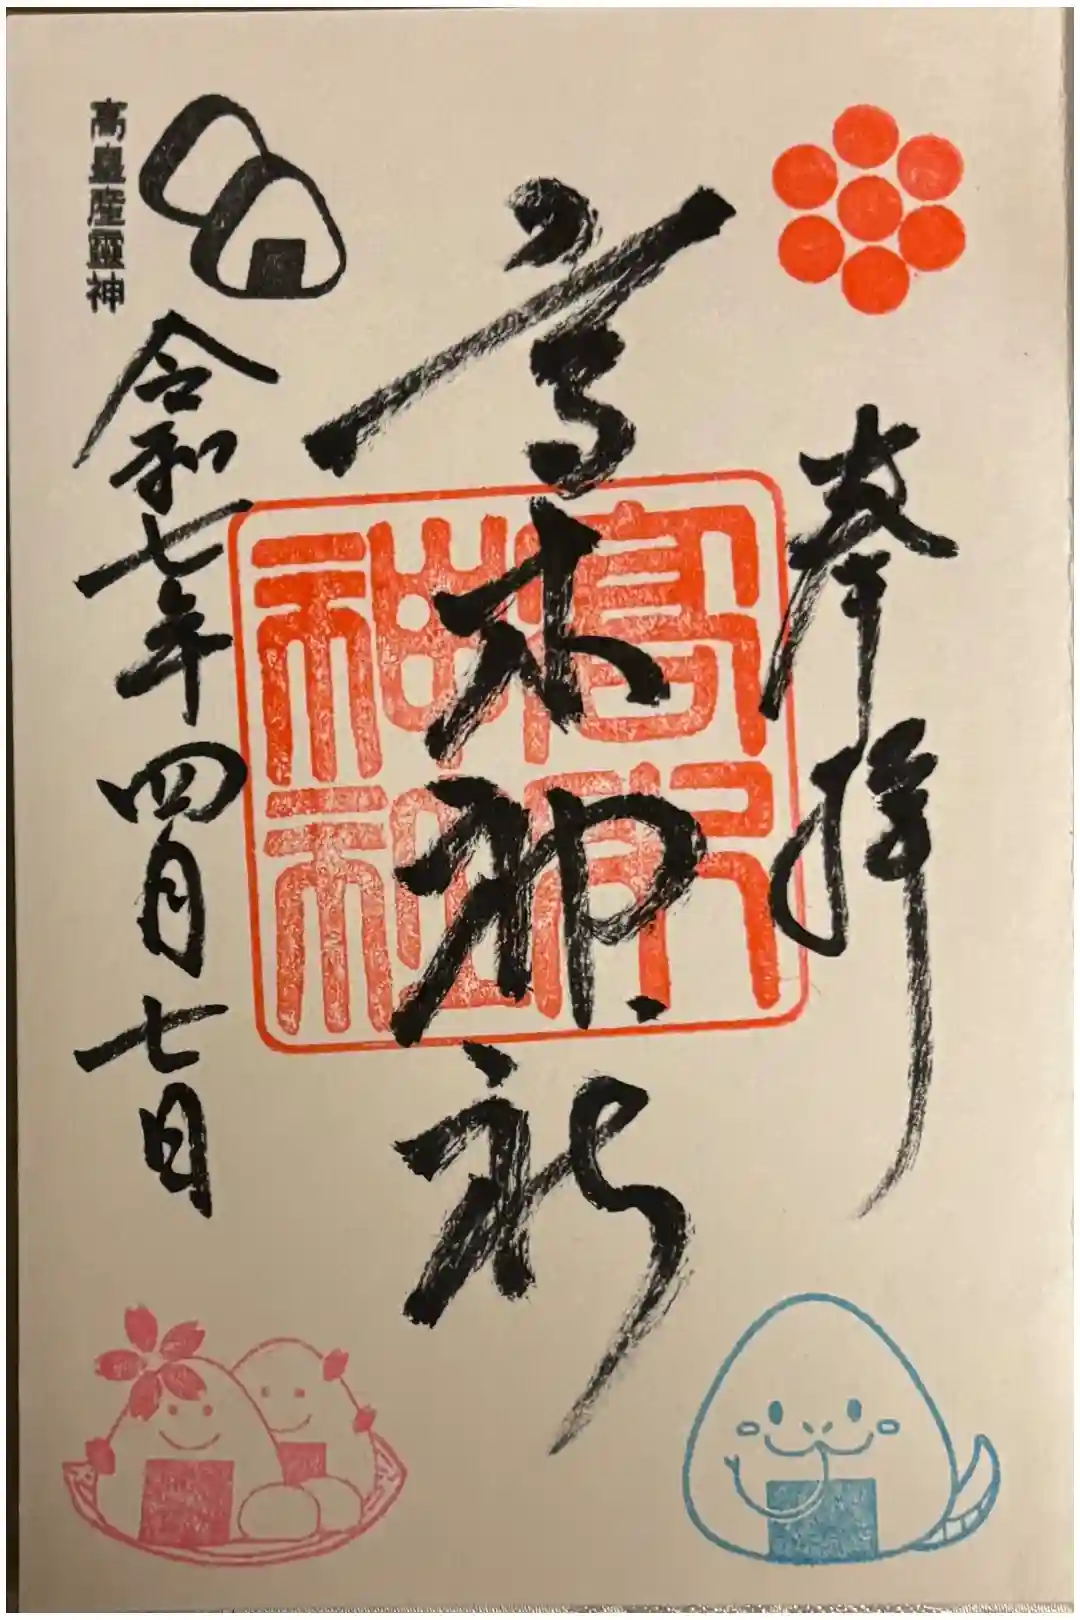 奉拝
高木神社
高木神社
令和七年四月七日
高皇産靈神